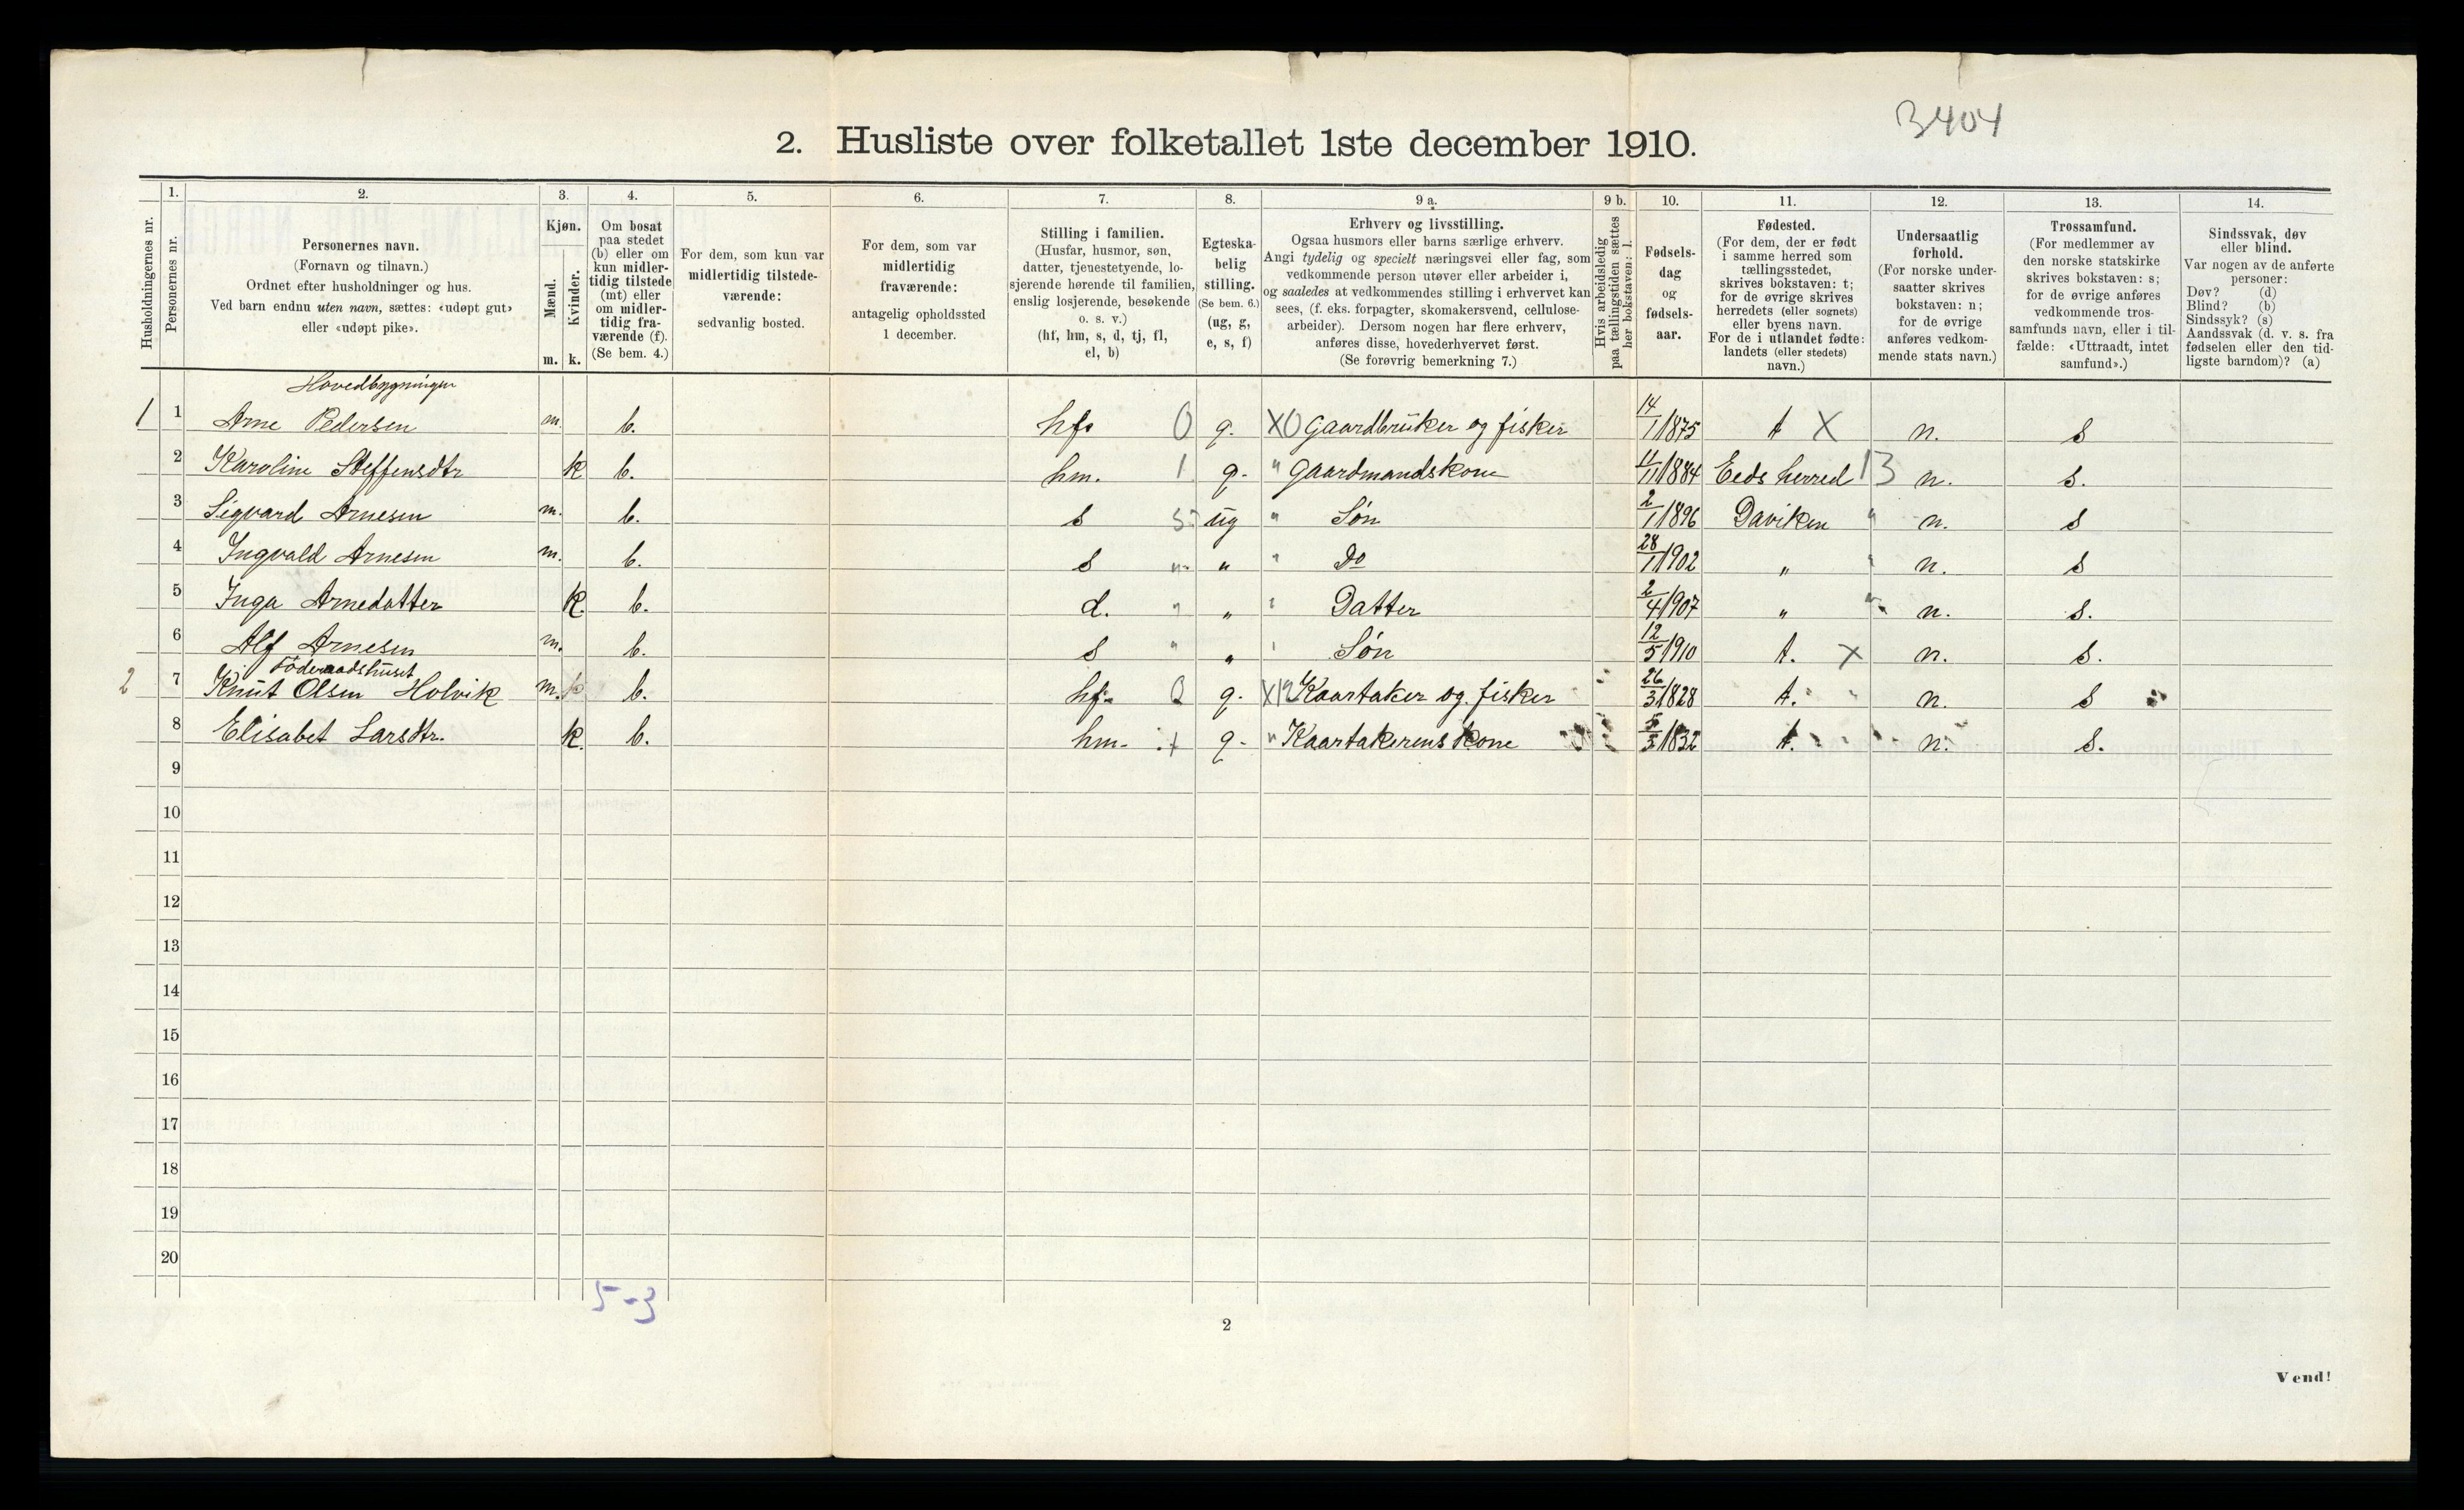 3404
2. Husliste over folketallet 1ste december 1910.
Husholdningernes nr.
1.
Personernes nr.
2.
Personernes navn.
(Fornavn og tilnavn.)
Ordnet efter husholdninger og hus.
Ved barn endnu uten navn, sættes: «udøpt gut»
eller «udøpt pike».
3.
Kjøn.
Mænd.
Kvinder.
m. k.
4.
Om bosat
paa stedet
(b) eller om
kun midler-
tidig tilstede
(mt) eller
om midler-
tidig fra-
værende (f).
(Se bem. 4.)
5.
For dem, som kun var
midlertidig tilstede-
værende:
sedvanlig bosted.
6.
For dem, som var
midlertidig
fraværende:
antagelig opholdssted
1 december.
7.
Stilling i familien.
(Husfar, husmor, søn,
datter, tjenestetyende, lo-
sjerende hørende til familien,
enslig losjerende, besøkende
o. s. v.)
(hf, hm, s, d, tj, fl,
el, b)
8.
Egteska-
belig
stilling.
(Se bem. 6.)
(ug, g,
e, s, f)
9 a.
Erhverv og livsstilling.
Ogsaa husmors eller barns særlige erhverv.
Angi tydelig og specielt næringsvei eller fag, som
vedkommende person utøver eller arbeider i,
og saaledes at vedkommendes stilling i erhvervet kan
sees, (f. eks. forpagter, skomakersvend, cellulose-
arbeider). Dersom nogen har flere erhverv,
anføres disse, hovederhvervet først.
(Se forøvrig bemerkning 7.)
9 b.
Hvis arbeidsledig
paa tællingstiden sættes
her bokstaven: l.
10.
Fødsels-
dag
og
fødsels-
aar.
11.
Fødested.
(For dem, der er født
i samme herred som
tællingsstedet,
skrives bokstaven: t;
for de øvrige skrives
herredets (eller sognets)
eller byens navn.
For de i utlandet fødte:
landets (eller stedets)
navn.)
12.
Undersaatlig
forhold.
(For norske under-
saatter skrives
bokstaven: n;
for de øvrige
anføres vedkom-
mende stats navn.)
13.
Trossamfund.
(For medlemmer av
den norske statskirke
skrives bokstaven: s;
for de øvrige anføres
vedkommende tros-
samfunds navn, eller i til-
fælde: «Uttraadt, intet
samfund».)
14.
Sindssvak, døv
eller blind.
Var nogen av de anførte
personer:
Døv? (d)
Blind? (b)
Sindssyk? (s)
Aandssvak (d. v. s. fra
fødselen eller den tid-
ligste barndom)? (a)
Hovedbygningen
1 1 Arne Pedersen m. b. hf. 0 g. X0 Gaardbruker og fisker 14/1 1875 t X n. s
2 Karoline Steffensdtr k b. hm. 1 g. " Gaardmandskone 11/11 1884 Eeds herred 13 n. s.
3 Sigvard Arnesen m. b. s 5 ug " Søn 2/1 1896 Daviken " n. s
4 Ingvald Arnesen m. b. s " " " Do 28/1 1902 " " n. s
5 Inga Arnedatter k. b. d. " " " Datter 2/4 1907 " " n. s.
6 Alf Arnesen m. b. s " " " Søn 12/5 1910 t. X n. s.
Föderaadshuset
2 7 Knut Olsen Holvik m. b. hf. g. X Kaartaker og fisker 26/3 1828 t. " n. s
8 Elisabet Larsdtr. k. b. hm. g. " Kaartakerens kone 5/3 1832 t. n. s.
9
10
11
12
13
14
15
16
17
18
19
20
5-3
2
Vend!